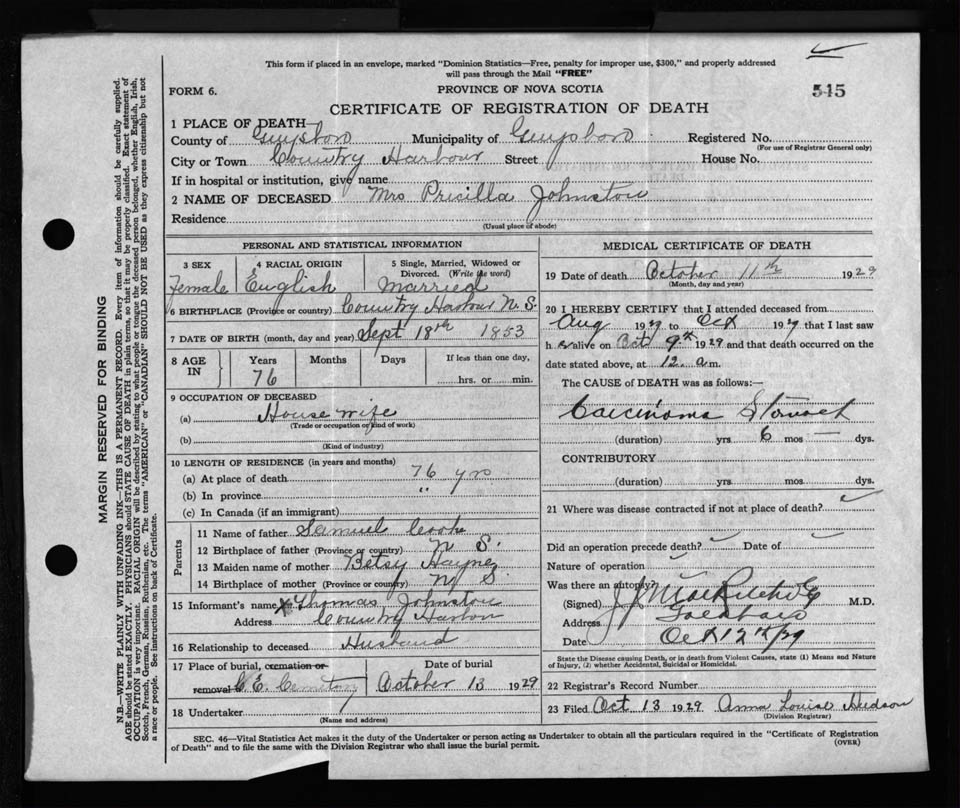 This form if placed in an envelope, marked "Dominion Statistics—Free, penalty for improper use, $300," and properly addressed
will pass through the Mail "FREE"
FORM 6.
PROVINCE OF NOVA SCOTIA
545
CERTIFICATE OF REGISTRATION OF DEATH
1 PLACE OF DEATH
County of Guysboro Municipality of Guysboro Registered No.
(For use of Registrar General only)
City or Town Country Harbour Street House No.
If in hospital or institution, give name
2 NAME OF DECEASED Mrs Pricilla Johnston
Residence
(Usual place of abode)
MARGIN RESERVED FOR BINDING
N.B.—WRITE PLAINLY WITH UNFADING INK—THIS IS A PERMANENT RECORD. Every item of information should be carefully supplied.
AGE should be stated EXACTLY. PHYSICIANS should STATE CAUSE OF DEATH in plain terms, so that it may be properly classified. Exact statement of
OCCUPATION is very important. RACIAL ORIGIN will be described by stating to what people or tongue the deceased person belonged, whether English, Irish,
Scotch, French, German, Russian, Ruthenian, etc. The terms "AMERICAN" or "CANADIAN" SHOULD NOT BE USED as they express citizenship but not
a race or people. See instructions on back of Certificate.
PERSONAL AND STATISTICAL INFORMATION
3 SEX
Female
4 RACIAL ORIGIN
English
5 Single, Married, Widowed or
Divorced. (Write the word)
Married
6 BIRTHPLACE (Province or country) Country Harbour N. S.
7 DATE OF BIRTH (month, day and year) Sept 18th 1853
8 AGE
IN
Years
76
Months
Days
If less than one day,
hrs. or min.
9 OCCUPATION OF DECEASED
(a) House wife
(Trade or occupation or kind of work)
(b)
(Kind of industry)
10 LENGTH OF RESIDENCE (in years and months)
(a) At place of death 76 yrs
(b) In province "
(c) In Canada (if an immigrant)
Parents
11 Name of father Samuel Cook
12 Birthplace of father (Province or country) N S.
13 Maiden name of mother Betsy Haynes
14 Birthplace of mother (Province or country) N S.
15 Informant's name X Thomas Johnston
Address Country Harbor
16 Relationship to deceased Husband
17 Place of burial, cremation or
removal C. E. Cemetery
Date of burial
October 13 1929
18 Undertaker
(Name and address)
MEDICAL CERTIFICATE OF DEATH
19 Date of death October 11th 1929
(Month, day and year)
20 I HEREBY CERTIFY that I attended deceased from
Aug 1929 to Oct 1929 that I last saw
h er alive on Oct 9th 1929 and that death occurred on the
date stated above, at 12. a m.
The CAUSE of DEATH was as follows:—
Carcinoma Stomach
(duration) yrs 6 mos — dys.
CONTRIBUTORY
(duration) yrs mos dys.
21 Where was disease contracted if not at place of death?
Did an operation precede death? Date of
Nature of operation
Was there an autopsy?
(Signed) M.D.
Address Goldboro
Date Oct 12th/29
State the Disease causing Death, or in death from Violent Causes, state (1) Means and Nature
of Injury, (2) whether Accidental, Suicidal or Homicidal.
22 Registrar's Record Number
23 Filed Oct 13 1929 Anna Louise Hudson
(Division Registrar)
SEC. 46—Vital Statistics Act makes it the duty of the Undertaker or person acting as Undertaker to obtain all the particulars required in the "Certificate of Registration
of Death" and to file the same with the Division Registrar who shall issue the burial permit.
(OVER)